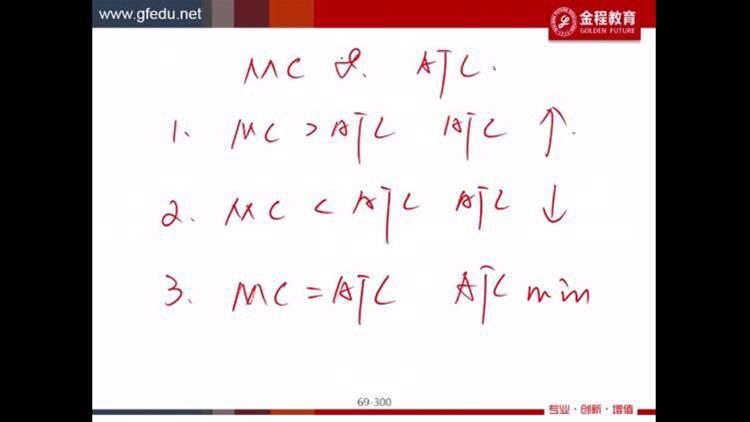 www.gfedu.net
金程教育
GOLDEN FUTURE
MC & ATC.
1. MC > ATC ATC ↑.
2. MC < ATC ATC ↓
3. MC = ATC ATC min
69-300
专业·创新·增值